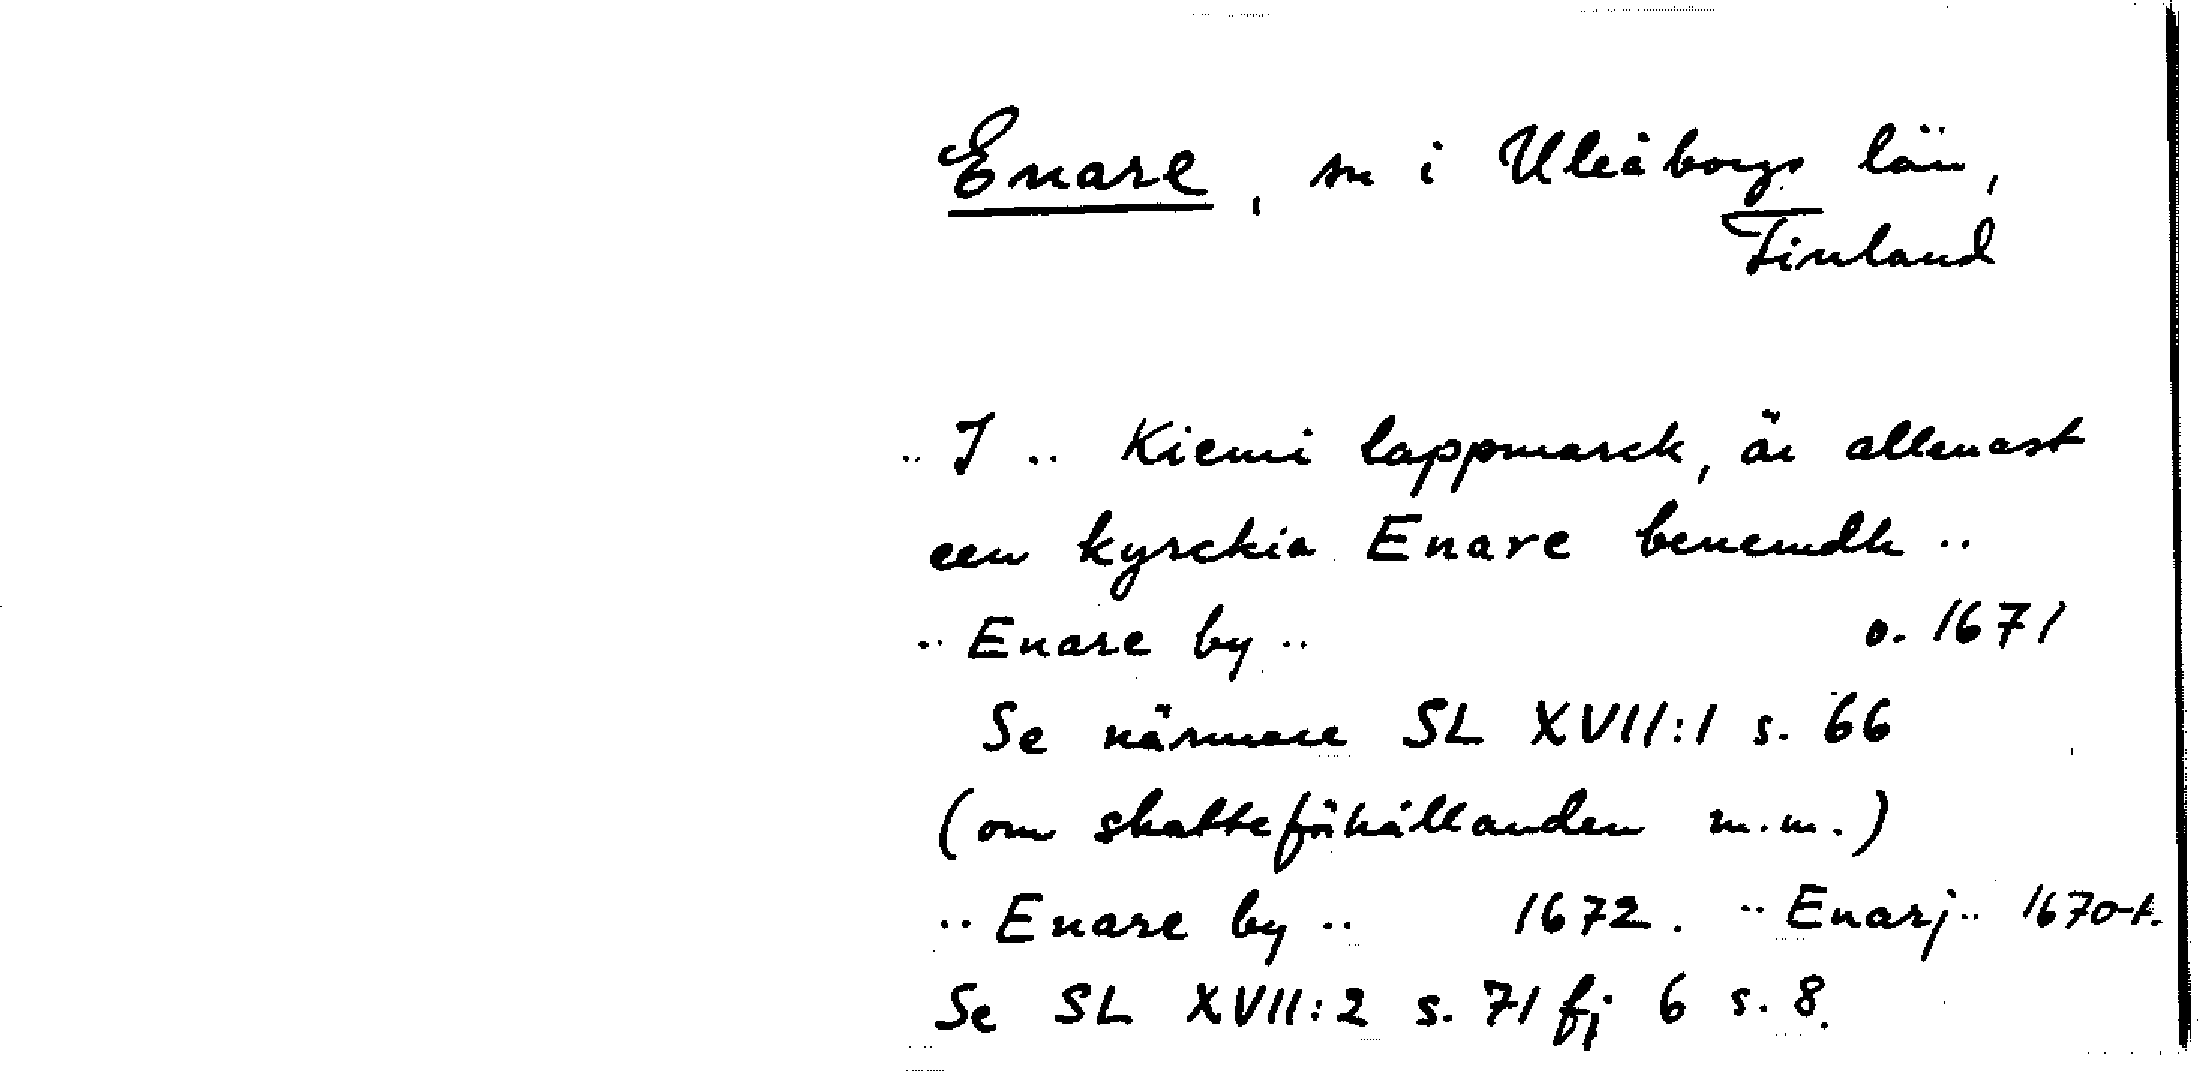 Enare, sn i Uleåborgs län,
Finland
.. I .. Kiemi lappmarck, är allenast
een kyrckia Enare benemdh ..
.. Enare by .. o. 1671
Se närmare SL XVII:1 s. 66
(om skatteförhållanden m.m.)
.. Enare by .. 1672. .. Enarj .. 1670-t.
Se SL XVII:2 s. 71 f; 6 s. 8.